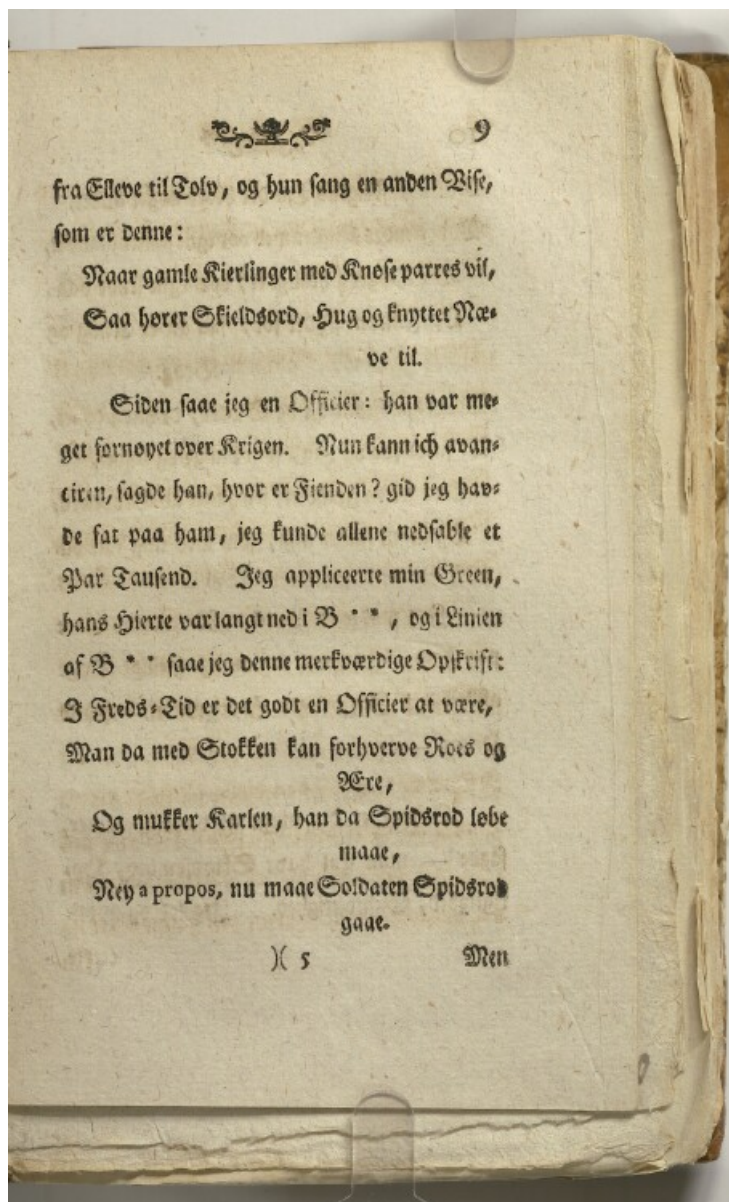 9
fra Elleve til Tolv, og hun sang en anden Vise,
som er denne:
Naar gamle Kierlinger med Knose parres vil,
Saa hører Skieldsord, Hug og knyttet Næ-
ve til.
Siden saae jeg en Officier: han var me-
get fornøyet over Krigen. Nun kann ich avan-
ciren, sagde han, hvor er Fienden? gid jeg hav-
de fat paa ham, jeg kunde allene nedsable et
Par Tausend. Jeg appliceerte min Green,
hans Hierte var langt ned i B * *, og i Linien
af B * * saae jeg denne merkværdige Opskrift:
I Freds-Tid er det godt en Officier at være,
Man da med Stokken kan forhverve Roes og
Ære,
Og mukker Karlen, han da Spidsrod løbe
maae,
Ney a propos, nu maae Soldaten Spidsrod
gaae.
)( 5 Men